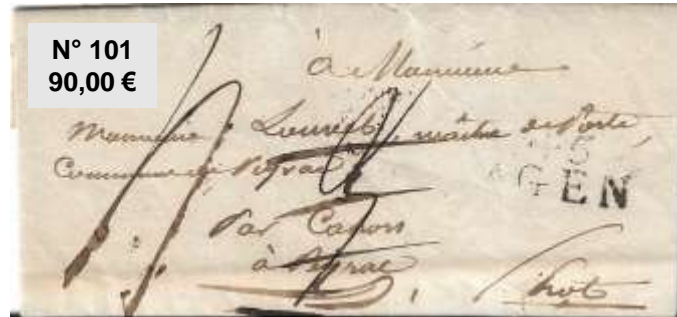 N° 101
90,00 €
à Monsieur
Monsieur Louvet, maître de Poste,
Commune de Peyrac
Par Cahors
à Peyrac
Lot
AGEN